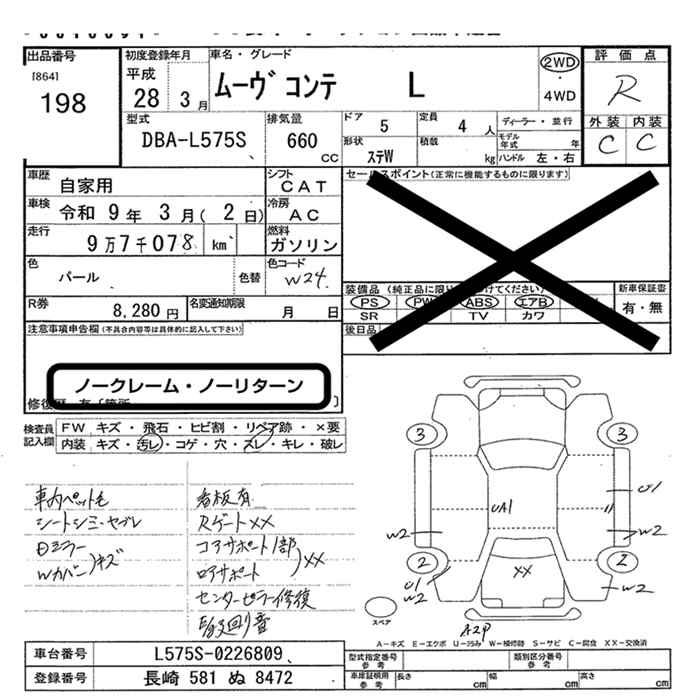 出品番号
[864]
198
初度登録年月
平成
28 3月
車名・グレード
ムーヴ コンテ L
2WD
・
4WD
評価点
R
外装 内装
C C
型式
DBA-L575S
排気量
660
CC
ドア
5
定員
4 人
ディーラー・並行
モデル年式 年
形状
ステW
積載
kg
ハンドル 左・右
車歴
自家用
シフト
CAT
車検 令和 9年 3月( 2日)
冷房
AC
走行
9万7千078 km
燃料
ガソリン
色
パール
色替
色コード
W24
R券
8,280円
名変通知期限
月 日
セールスポイント(正常に機能するものに限ります)
新車保証書
有・無
PS PW ABS エアB
SR TV カワ
後日品
注意事項申告欄(不具合内容等は具体的に記入して下さい)
ノークレーム・ノーリターン
検査員記入欄
FW キズ・飛石・ヒビ割・リペア跡・×要
内装 キズ・汚レ・コゲ・穴・スレ・キレ・破レ
車内ペット毛
シートシミ・ヤブレ
Wカバー
キズ
看板有
RゲートXX
コアサポート1部
ロアサポート
XX
センターピラー修復
3 3
U1
UA1
W2 W2
2 2
XX
U1
W2 W2
スペア
A2P
A-キズ E-エクボ U-凹み W-補修跡 S-サビ C-腐食 XX-交換済
車台番号 L575S-0226809
登録番号 長崎 581 ぬ 8472
型式指定番号
参考
類別区分番号
参考
車庫証明用
参考
長さ cm 幅 cm 高さ cm